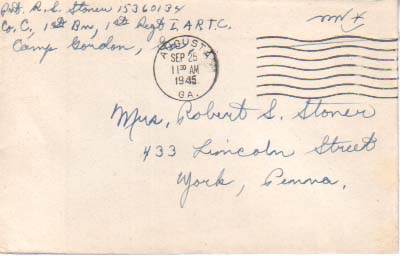 Pvt. R. S. Stoner 15360134
Co. C, 1st Bn, 1st Regt I.A.R.T.C.
Camp Gordon, Ga.
AUGUSTA
SEP 25
11 30 AM
1945
GA.
Mrs. Robert S. Stoner
433 Lincoln Street
York, Penna.